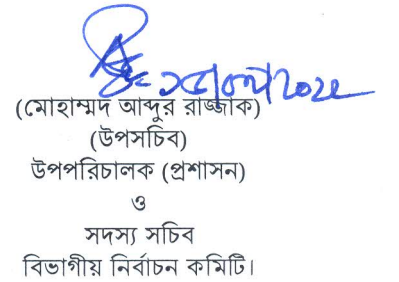 (মোহাম্মদ আব্দুর রাজ্জাক)
(উপসচিব)
উপপরিচালক (প্রশাসন)
ও
সদস্য সচিব
বিভাগীয় নির্বাচন কমিটি।